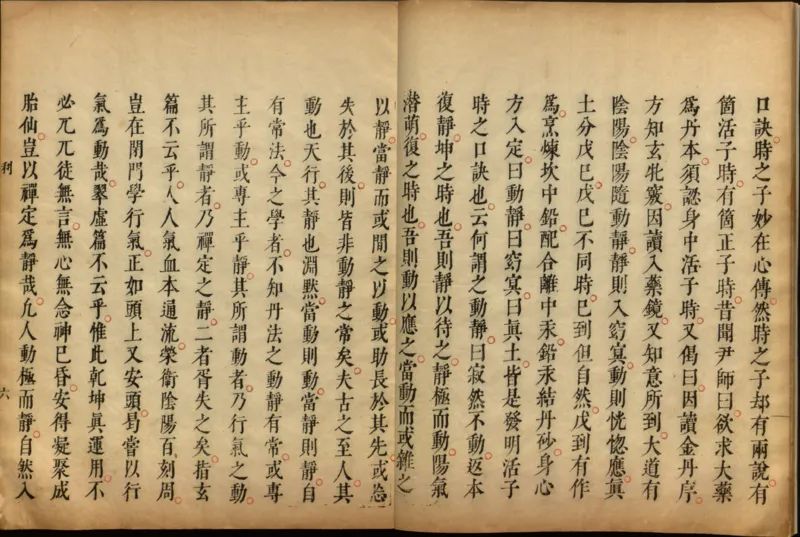 口訣時之子妙在心傳然時之子却有兩說有
箇活子時有箇正子時昔聞尹師曰欲求大藥
爲丹本須認身中活子時又偈曰因讀金丹序
方知玄牝竅因讀入藥鏡又知意所到大道有
陰陽陰陽隨動靜靜則入窈㝠動則恍惚應眞
土分戊巳戊巳不同時巳到但自然戊到有作
爲烹煉坎中鉛配合離中汞鉛汞結丹砂身心
方入定曰動靜曰窈㝠曰眞土皆是發明活子
時之口訣也云何謂之動靜曰寂然不動返本
復靜坤之時也吾則靜以待之靜極而動陽氣
潛萌復之時也吾則動以應之當動而或雜之
以靜當靜而或間之以動或助長於其先或怠
失於其後則皆非動靜之常矣夫古之至人其
動也天行其靜也淵默當動則動當靜則靜自
有常法今之學者不知丹法之動靜有常或專
主乎動或專主乎靜其所謂動者乃行氣之動
其所謂靜者乃禪定之靜二者胥失之矣指玄
篇不云乎人人氣血本通流榮衛陰陽百刻周
豈在閉門學行氣正如頭上又安頭曷嘗以行
氣爲動哉翠虛篇不云乎惟此乾坤眞運用不
必兀兀徒無言無心無念神巳昏安得凝聚成
胎仙豈以禪定爲靜哉允人動極而靜自然入
利
六